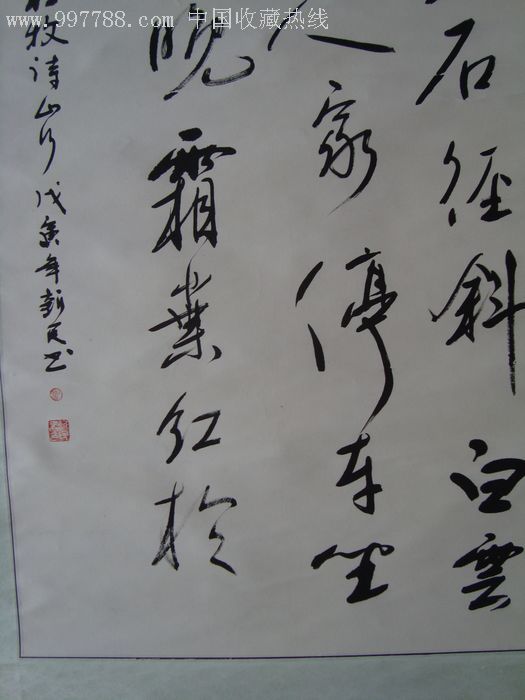 www.997788.com 中国收藏热线
石径斜白雲
人家停车坐
晚霜葉红於
牧詩山行 戊寅年新书